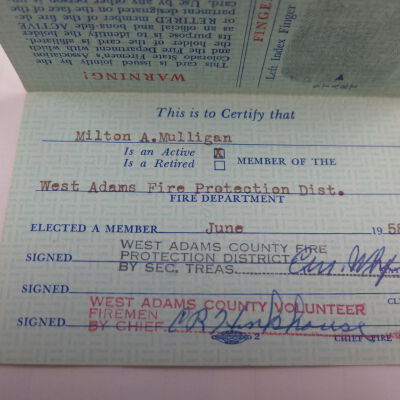 WARNING!
This card is issued jointly by the
Colorado State Firemen's Association
and the Fire Department with which
the holder of the card is affiliated.
Its purpose is to identify the holder
as an official and bona-fide ACTIVE
or RETIRED member of the fire de-
partment designated on the face of the
card.
FINGE
Left Index Finger
This is to Certify that
Milton A.Mulligan
Is an Active X
Is a Retired MEMBER OF THE
West Adams Fire Protection Dist.
FIRE DEPARTMENT
ELECTED A MEMBER June 1958
WEST ADAMS COUNTY FIRE
SIGNED PROTECTION DISTRICT
BY SEC. TREAS.
SIGNED
WEST ADAMS COUNTY VOLUNTEER
FIREMEN
SIGNED BY CHIEF C R Hinkhouse
2 CHIEF FIRE